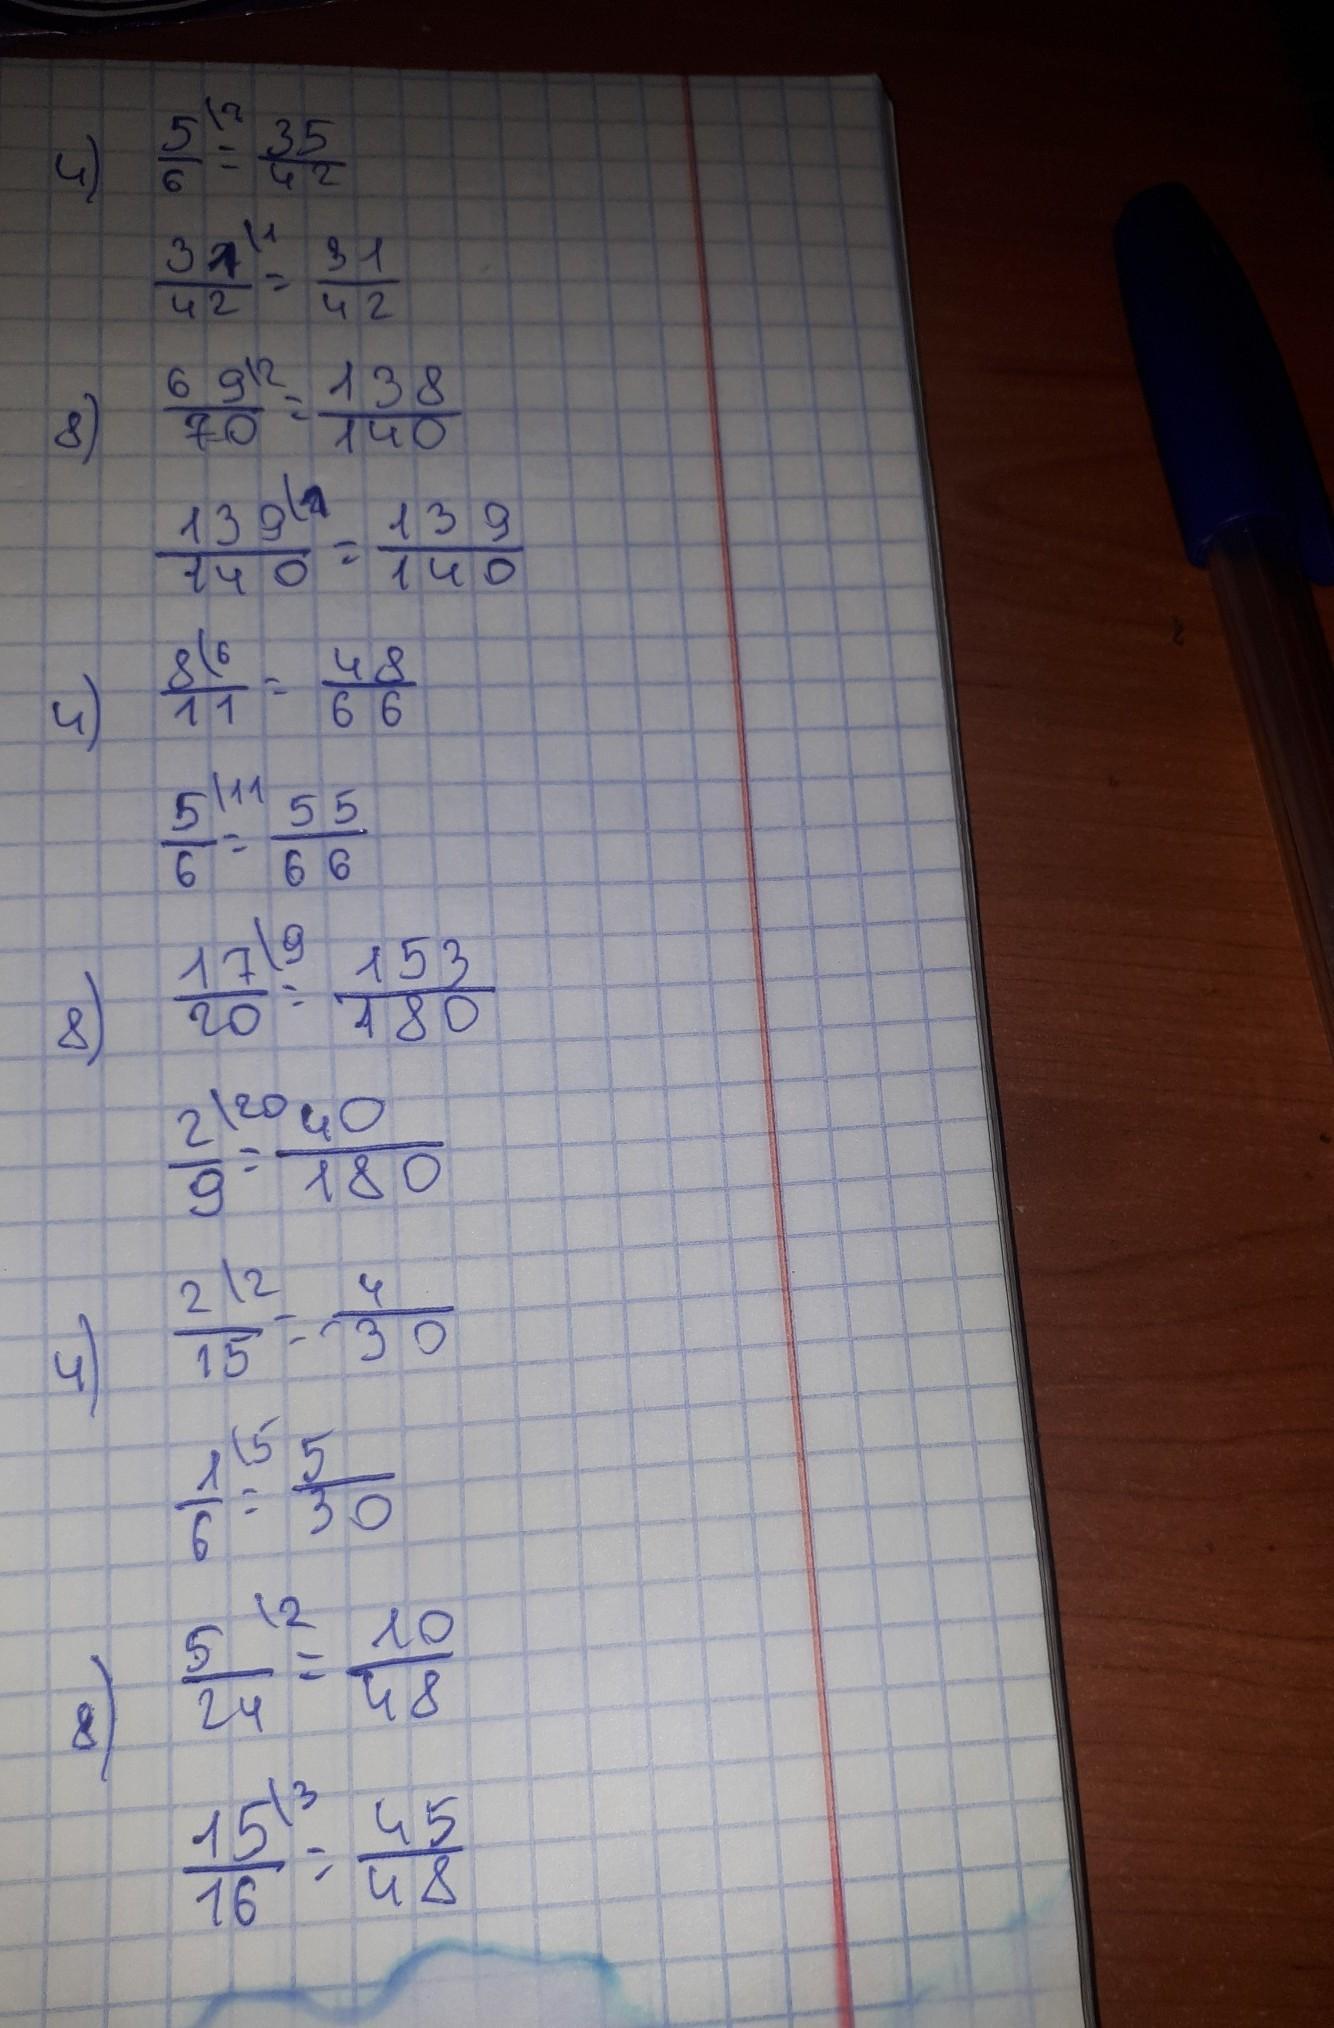 4) 5/6 \7 = 35/42
31/42 \1 = 31/42
8) 69/70 \2 = 138/140
139/140 \1 = 139/140
4) 8/11 \6 = 48/66
5/6 \11 = 55/66
8) 17/20 \9 = 153/180
2/9 \20 = 40/180
4) 2/15 \2 = 4/30
1/6 \5 = 5/30
8) 5/24 \2 = 10/48
15/16 \3 = 45/48